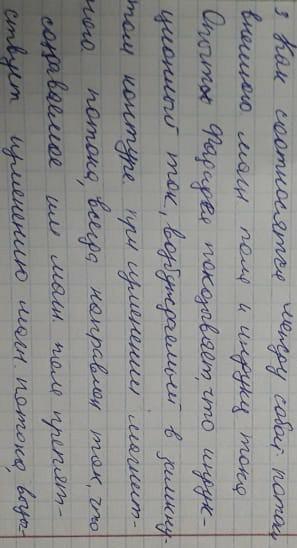 3 Как соотносятся между собой поток
внешнего магн поля и индукц тока
Опыты Фарадея показывает, что индук-
ционный ток, возбуждаемый в замкну-
том контуре при изменении магнит-
ного потока, всегда направлен так, что
создаваемое им магн. поле препят-
ствует изменению магн. потока, вызы-